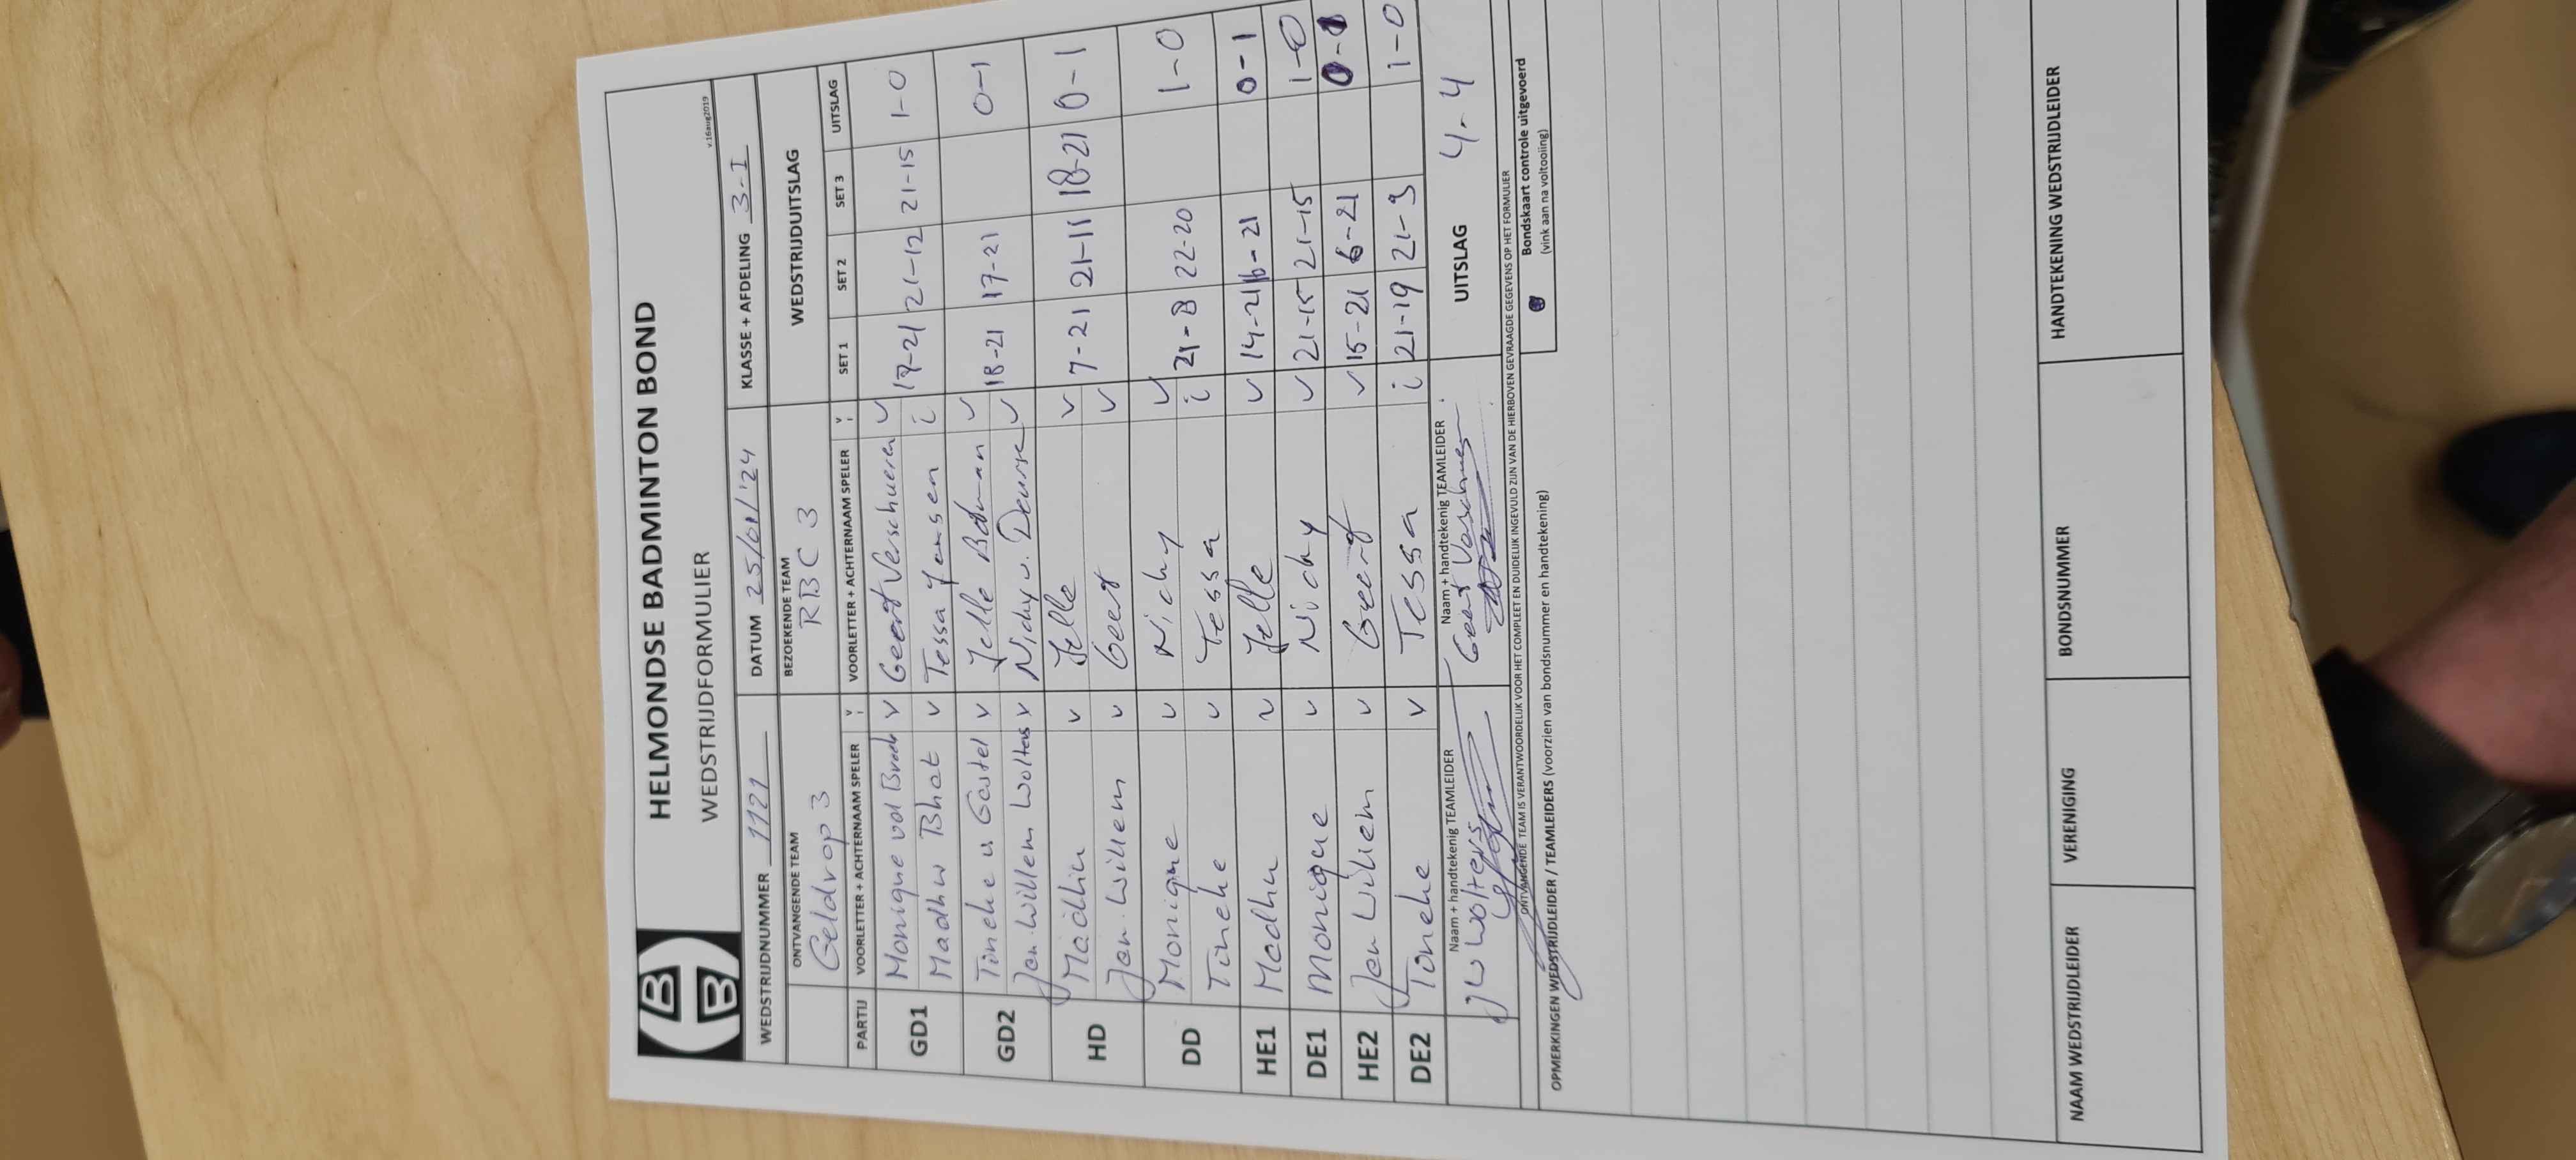 HELMONDSE BADMINTON BOND
WEDSTRIJDFORMULIER
v.16aug2019
WEDSTRIJDNUMMER 1121 DATUM 25/01/'24 KLASSE + AFDELING 3-I
ONTVANGENDE TEAM BEZOEKENDE TEAM WEDSTRIJDUITSLAG
Geldrop 3 RBC 3
PARTIJ VOORLETTER + ACHTERNAAM SPELER V I VOORLETTER + ACHTERNAAM SPELER V I SET 1 SET 2 SET 3 UITSLAG
GD1 Monique vd v Geert Verschueren v 17-21 21-12 21-15 1-0
Madhu Bhat v Tessa Jensen i
GD2 Tineke v Gastel v Jelle v 18-21 17-21 0-1
Jan-Willem Wolters v Nicky v. Deursen v
HD Madhu v Jelle v 7-21 21-11 18-21 0-1
Jan-Willem v Geert v
DD Monique v Nicky v 21-8 22-20 1-0
Tineke v Tessa i
HE1 Madhu v Jelle v 14-21 16-21 0-1
DE1 Monique v Nicky v 21-15 21-15 1-0
HE2 Jan Willem v Geert v 15-21 6-21 0-1
DE2 Tineke v Tessa i 21-19 21-9 1-0
Naam + handtekenig TEAMLEIDER Naam + handtekenig TEAMLEIDER UITSLAG 4-4
JW Wolters Geert Verschueren
ONTVANGENDE TEAM IS VERANTWOORDELIJK VOOR HET COMPLEET EN DUIDELIJK INGEVULD ZIJN VAN DE HIERBOVEN GEVRAAGDE GEGEVENS OP HET FORMULIER
Bondskaart controle uitgevoerd
(vink aan na voltooiing)
OPMERKINGEN WEDSTRIJDLEIDER / TEAMLEIDERS (voorzien van bondsnummer en handtekening)
NAAM WEDSTRIJDLEIDER VERENIGING BONDSNUMMER HANDTEKENING WEDSTRIJDLEIDER